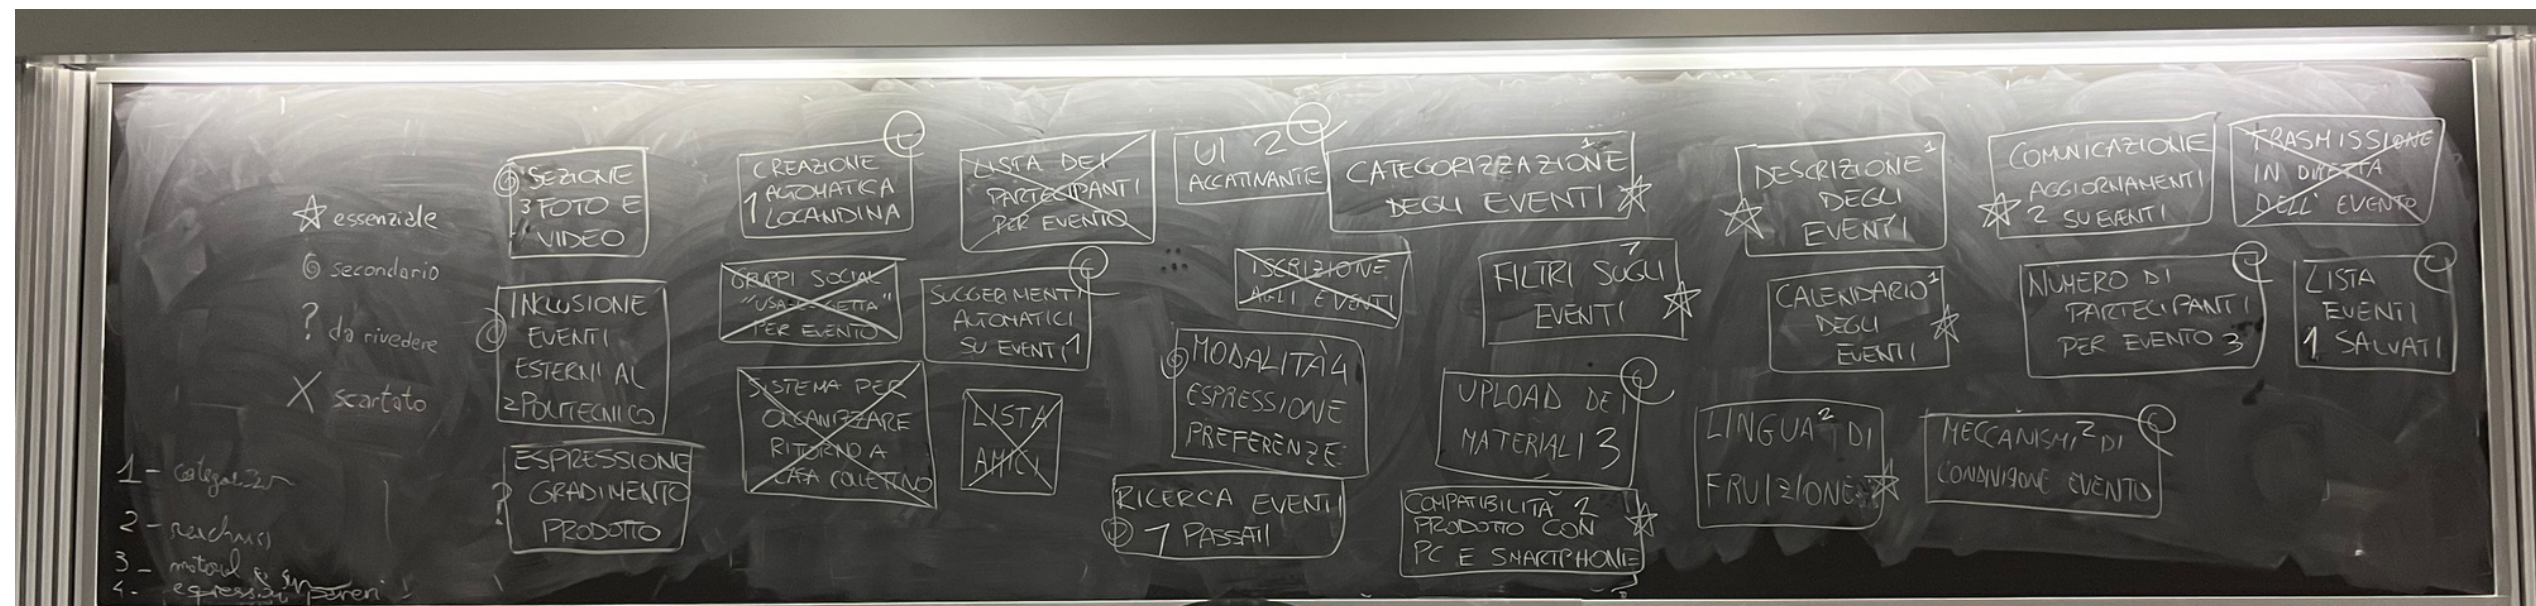 essenziale
secondario
? da rivedere
X scartato
1 -
2 -
3 -
4. - espressioni pareri
SEZIONE
3 FOTO E
VIDEO
INCLUSIONE
EVENTI
ESTERNI AL
2 POLITECNICO
ESPRESSIONE
? GRADIMENTO
PRODOTTO
CREAZIONE
AUTOMATICA
1 LOCANDINA
GRUPPI SOCIAL
"USA E GETTA"
PER EVENTO
SISTEMA PER
ORGANIZZARE
RITORNO A
CASA COLLETTIVO
LISTA DEI
PARTECIPANTI
PER EVENTO
SUGGERIMENTI
AUTOMATICI
SU EVENTI 1
LISTA
AMICI
UI 2
ACCATTIVANTE
CATEGORIZZAZIONE 1
DEGLI EVENTI
ISCRIZIONE
AGLI EVENTI
MODALITÀ 4
ESPRESSIONE
PREFERENZE
RICERCA EVENTI
1 PASSATI
1
FILTRI SUGLI
EVENTI
UPLOAD DEI
MATERIALI 3
COMPATIBILITÀ 2
PRODOTTO CON
PC E SMARTPHONE
DESCRIZIONE 1
DEGLI
EVENTI
CALENDARIO 1
DEGLI
EVENTI
LINGUA 2 DI
FRUIZIONE
COMUNICAZIONE
AGGIORNAMENTI
2 SU EVENTI
NUMERO DI
PARTECIPANTI
PER EVENTO 3
MECCANISMI 2 DI
CONDIVISIONE EVENTO
TRASMISSIONE
IN DIRETTA
DELL'EVENTO
LISTA
EVENTI
1 SALVATI